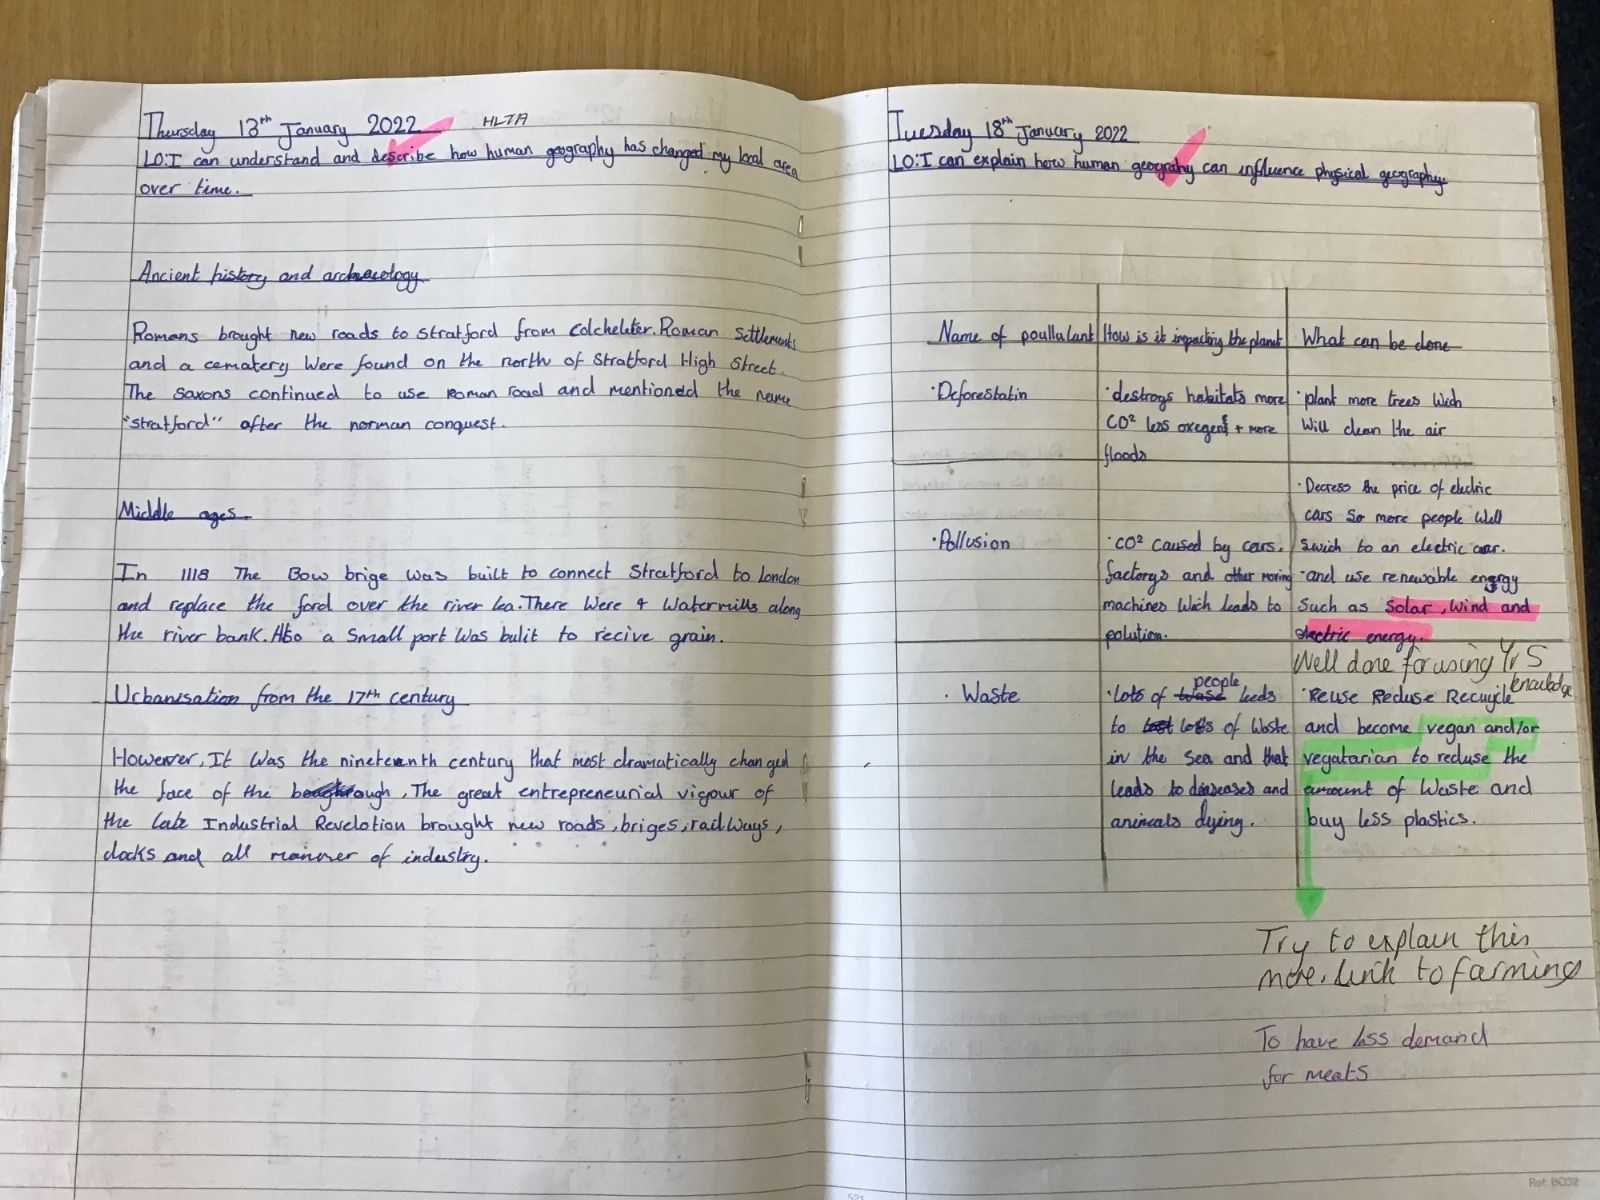 Thursday 13th January 2022
HLTA
LO:I can understand and describe how human geography has changed my local area
over time.
Ancient history and archaeology
Romans brought new roads to Stratford from Colchelster. Roman Settlements
and a cematery Were found on the north of Stratford High Street.
The saxons continued to use Roman road and mentioned the name
"stratford" after the norman conquest.
Middle ages
In 1118 The Bow brige was built to connect Stratford to London
and replace the ford over the river lea. There Were 4 Watermills along
the river bank. Also a Small port Was bulit to recive grain.
Urbanisation from the 17th century
However, It Was the nineteenth century that most dramatically changed
the face of the borough, The great entrepreneurial vigour of
the late Industrial Revelotion brought new roads, briges, railways,
docks and all manner of industry.
Tuesday 18th January 2022
LO:I can explain how human geograhy can influence physical geography.
Name of poullutant
How is it impacting the planet
What can be done
·Deforestatin
·destroys habitats more
CO² less oxegen + more
floods
·plant more trees Wich
Will clean the air
·Pollusion
·CO² caused by cars,
factorys and other moving
machines Wich leads to
polution.
·Decress the price of electric
cars So more people Well
Swich to an electric car.
·and use renewable energy
Such as Solar, Wind and
electric energy.
Well done for using Yr 5
knowledge
· Waste
·Lots of people leeds
to lots of Waste
in the Sea and that
leads to diseases and
animals dying.
·Reuse Reduse Recuycle
and become vegan and/or
vegatarian to reduse the
amount of Waste and
buy less plastics.
Try to explain this
more. Link to farming
To have less demand
for meats
521
Ref: BO32